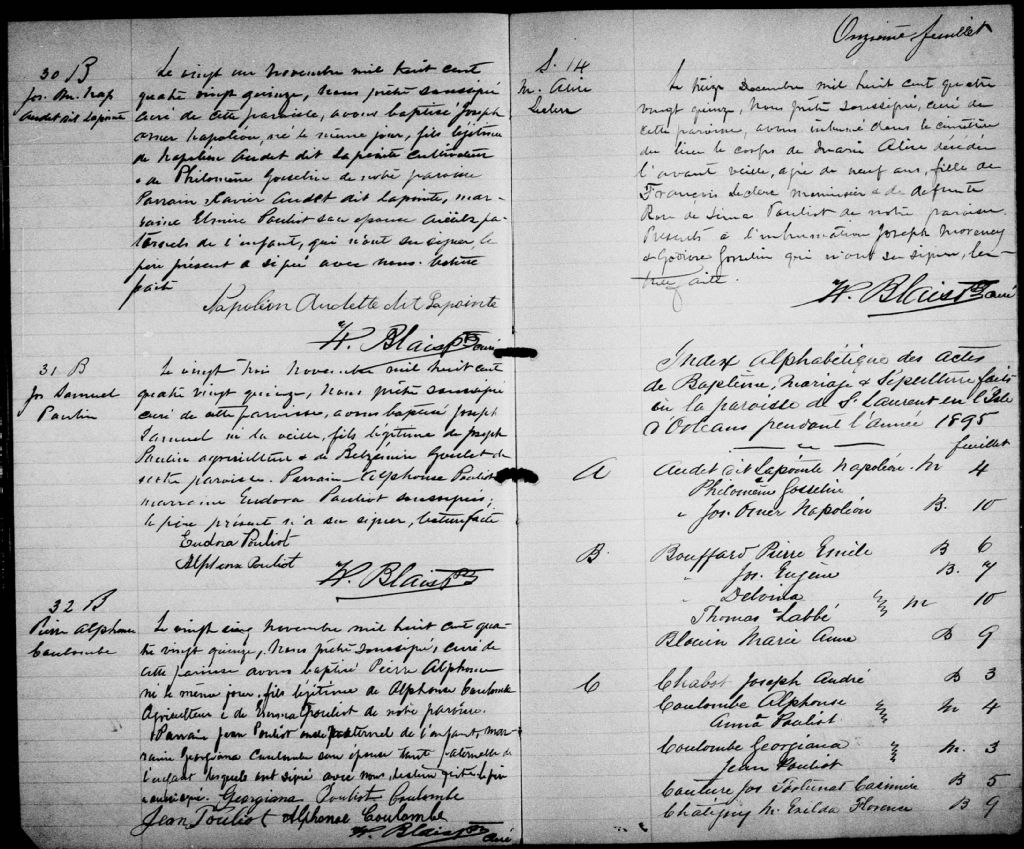 30 B
Jos. Om. Nap
Audet dit Lapointe
Le vingt un Novembre mil huit cent
quatre vingt quinze, Nous prêtre soussigné
curé de cette paroisse, avons baptisé Joseph
Omer Napoléon, né le même jour, fils légitime
de Napoléon Audet dit Lapointe cultivateur
& de Philomène Gosselin de notre paroisse
Parrain Xavier Audet dit Lapointe, mar-
raine Elmire Pouliot son épouse aieuls pa-
ternels de l'enfant, qui n'ont su signer, le
père présent a signé avec nous. Lecture
faite
Napoléon Audette dit Lapointe
W. Blais Ptr curé
31 B
Jos Samuel
Paulin
Le vingt trois Novembre mil huit cent
quatre vingt quinze, Nous prêtre soussigné
curé de cette paroisse, avons baptisé Joseph
Samuel né la veille, fils légitime de Joseph
Paulin agriculteur & de Goulet de
cette paroisse. Parrain Alphonse Pouliot
marraine Eudora Pouliot soussignés;
le père présent n'a su signer, lecture faite
Eudora Pouliot
Alphonse Pouliot
W. Blais Ptr
32 B
Pierre Alphonse
Coulombe
Le vingt cinq Novembre mil huit cent qua-
tre vingt quinze, Nous prêtre soussigné, curé de
cette paroisse avons baptisé Pierre Alphonse
né le même jour, fils légitime de Alphonse Coulombe
Agriculteur & de Emma Pouliot de notre paroisse.
Parrain Jean Pouliot oncle maternel de l'enfant, mar-
raine Georgiana Coulombe son épouse tante paternelle de
l'enfant lesquels ont signé avec nous, lecture faite le père
a aussi signé. Georgiana Pouliot Coulombe
Jean Pouliot Alphonse Coulombe
W. Blais Ptr curé
Onzième feuillet
S. 14
M. Alice
Leclerc
Le treize Decembre mil huit cent quatre
vingt quinze, Nous prêtre soussigné, curé de
cette paroisse, avons inhumé dans le cimetière
du lieu le corps de Marie Alice décédée
l'avant veille, agée de neuf ans, fille de
François Leclerc menuisier & de defunte
Rose de Lima Pouliot de notre paroisse.
Présents à l'inhumation Joseph Morency
& Gosselin qui n'ont su signer, lec-
ture faite.
W. Blais Ptr curé
Index alphabétique des actes
de Baptême, Mariage & Sépulture faits
en la paroisse de St. Laurent en l'Isle
d'Orléans pendant l'année 1895
feuillet
A Audet dit Lapointe Napoléon. M 4
& Philomène Gosselin
" Jos. Omer Napoléon B. 10
B Bouffard Pierre Emile B 6
" Jos. Eugène B. 7
" Delvina M 10
& Thomas Labbé
Blouin Marie Anne B 9
C Chabot Joseph André B 3
Coulombe Alphonse M 4
& Anna Pouliot
Coulombe Georgiana M. 3
& Jean Pouliot
Couture Jos Fortunat Casimir B 5
Chatigny M. Exilda Florence B 9